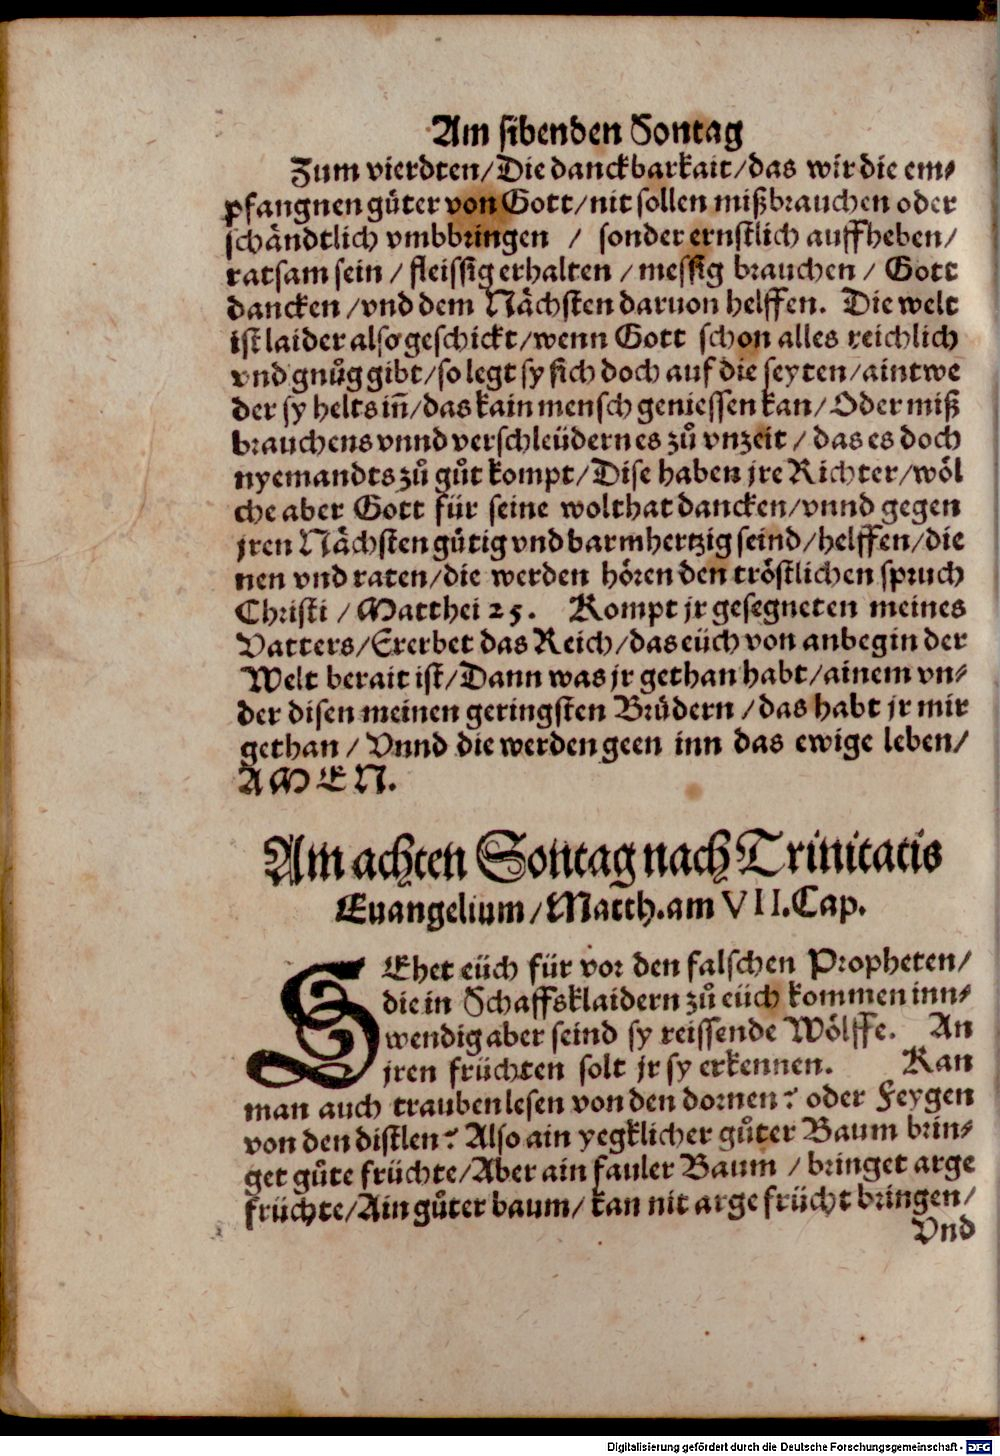 Am sibenden Sontag
Zum vierdten/Die danckbarkait/das wir die em⸗
pfangnen gůter von Gott/nit sollen mißbrauchen oder
schändtlich vmbbringen / sonder ernstlich auffheben/
ratsam sein / fleissig erhalten / messig brauchen / Gott
dancken /vnd dem Nächsten daruon helffen. Die welt
ist laider also geschickt/wenn Gott schon alles reichlich
vnd gnůg gibt/so legt sy sich doch auf die seyten/aintwe
der sy helts iñ/das kain mensch geniessen kan/Oder miß
brauchens vnnd verschleüdern es zů vnzeit / das es doch
nyemandts zů gůt kompt/Dise haben jre Richter/wöl
che aber Gott für seine wolthat dancken/vnnd gegen
jren Nächsten gůtig vnd barmhertzig seind/helffen/die
nen vnd raten/die werden hören den tröstlichen spruch
Christi / Matthei 25. Kompt jr gesegneten meines
Vatters/Ererbet das Reich/das eüch von anbegin der
Welt berait ist/Dann was jr gethan habt/ainem vn⸗
der disen meinen geringsten Brüdern /das habt jr mir
gethan / Vnnd die werden geen inn das ewige leben/
AMEN.
Am achten Sontag nach Trinitatis
Euangelium/Matth.am VII.Cap.
SEhet eüch für vor den falschen Propheten/
die in Schaffsklaidern zů eüch kommen inn⸗
wendig aber seind sy reissende Wölffe. An
jren früchten solt jr sy erkennen. Kan
man auch trauben lesen von den dornen? oder Feygen
von den distlen? Also ain yegklicher gůter Baum brin⸗
get gůte früchte/Aber ain fauler Baum / bringet arge
früchte/Ain gůter baum/ kan nit arge frücht bringen/
Vnd
Digitalisierung gefördert durch die Deutsche Forschungsgemeinschaft - DFG